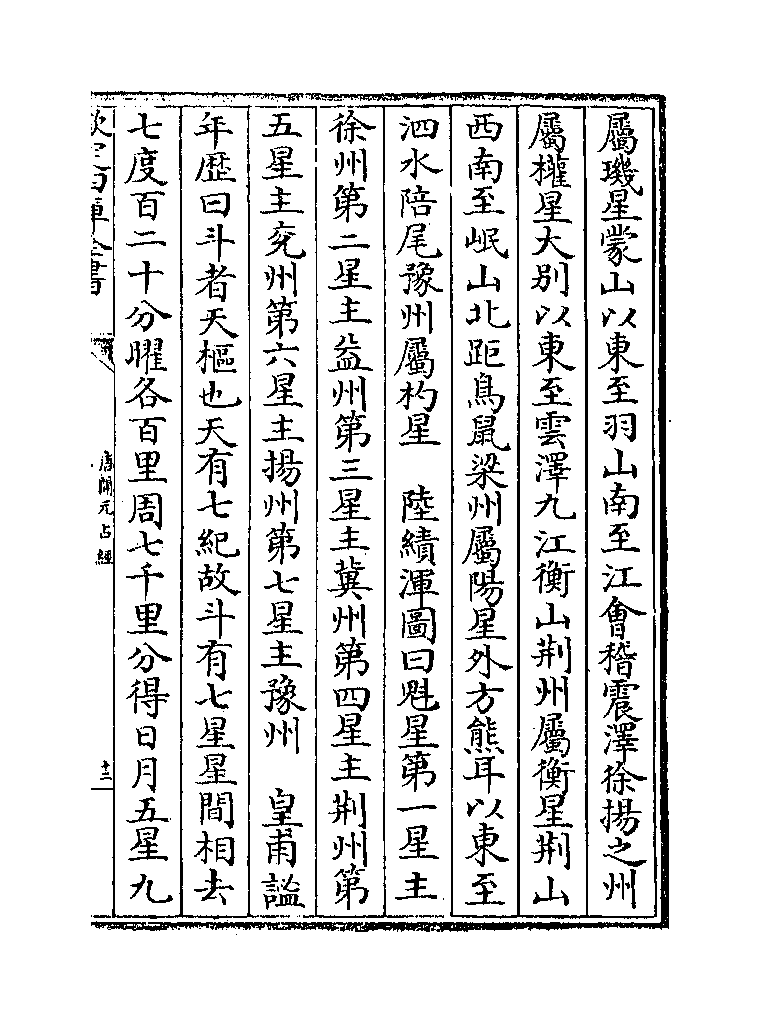 屬璣星蒙山以東至羽山南至江會稽震澤徐揚之州
屬權星大別以東至雲澤九江衡山荆州屬衡星荆山
西南至岷山北距鳥鼠梁州屬陽星外方熊耳以東至
泗水陪尾豫州屬杓星　陸績渾圖曰魁星第一星主
徐州第二星主益州第三星主冀州第四星主荆州第
五星主兖州第六星主揚州第七星主豫州　皇甫謐
年歴曰斗者天樞也天有七紀故斗有七星星間相去
七度百二十分曜各百里周七千里分得日月五星九
欽定四庫全書
唐開元占經
十二